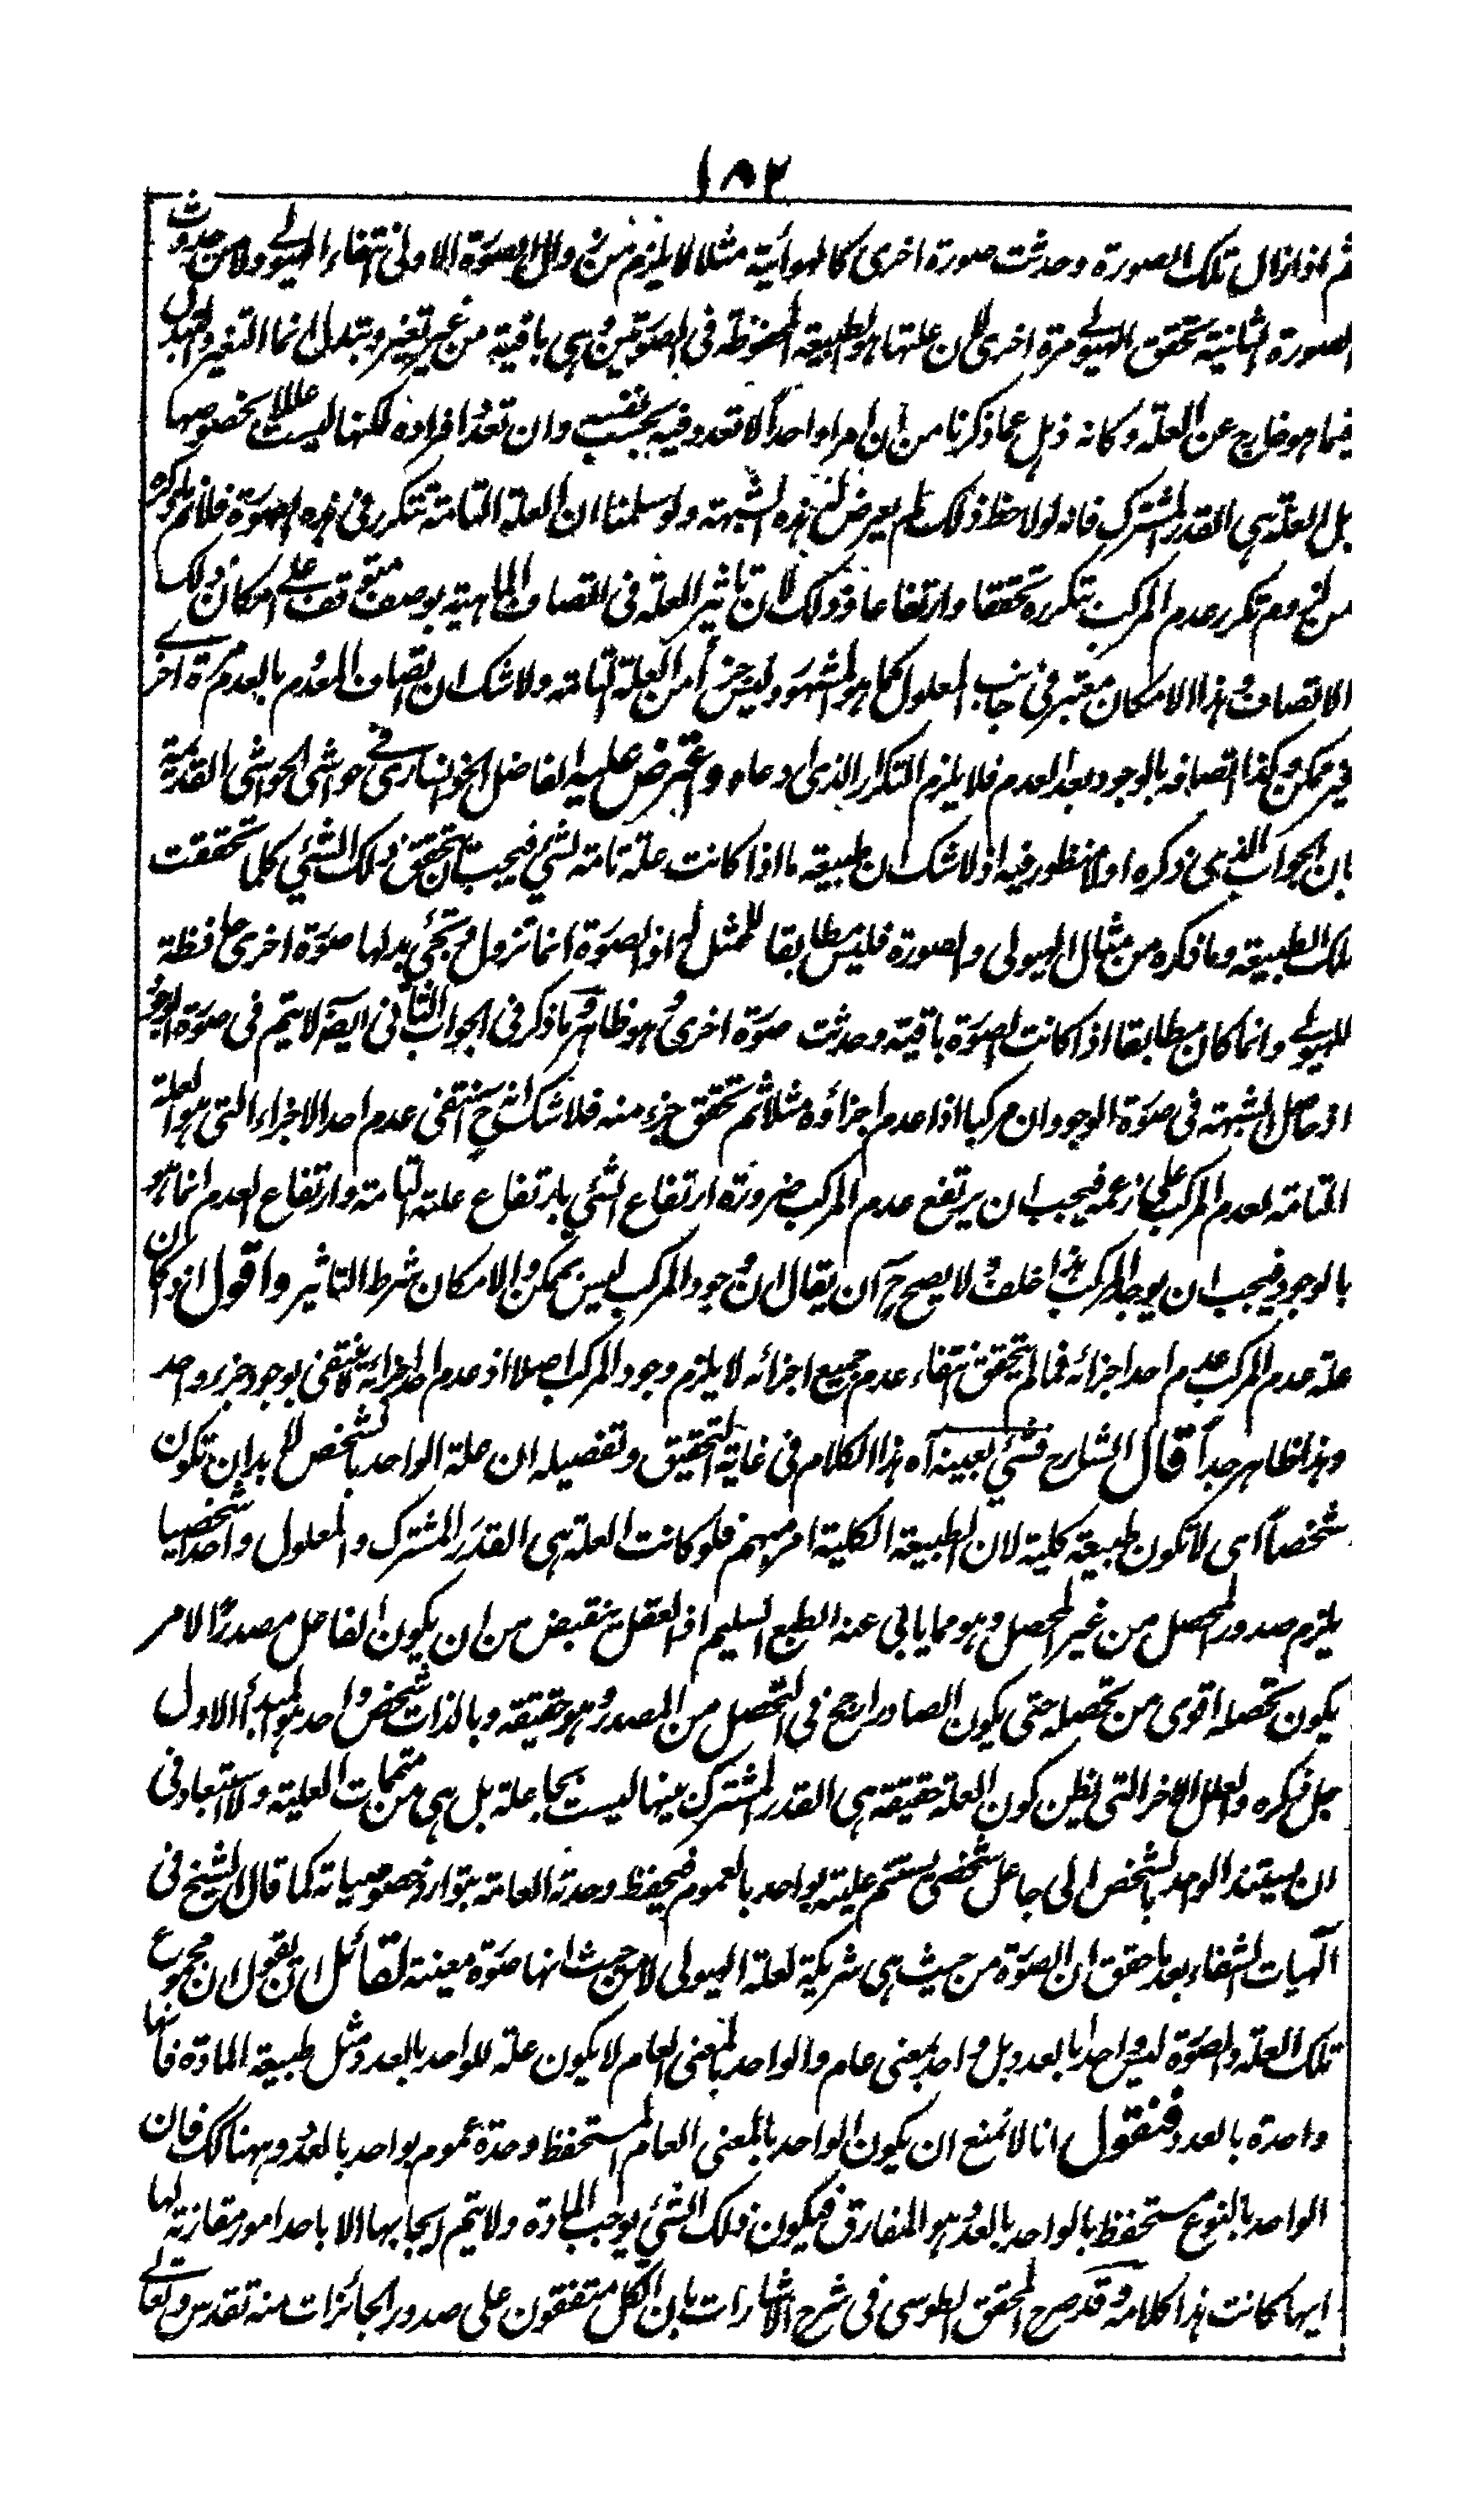 ١٨٢
ثم اذا زال تلك الصورة وحدثت صورة اخرى كالهوائية مثلا لا يلزم من زوال الصورة الاولى انتفاء الهيولى ولا من حدوث
الصورة الثانية تحقق الهيولى مرة اخرى لان علتها هو الطبيعة المحفوظة فى الصورتين وهى باقية من غير تغير وتبدل انما التغير والتبدل
فيما هو خارج عن العلة وكانه ذهل عما ذكرنا من ان امرا واحدا لا تعدد فيه بحسب نفسه وان تعدد افراده لكنها ليست عللا بخصوصها
بل العلة هى القدر المشترك فانه لو لاحظ ذلك لم يعرض له هذه الشبهة ولو سلمنا ان العلة التامة تتكرر فى هذه الصورة فلا نم
من تكرر عدم المركب بتكرره تحققا وارتفاعا وذلك لان تاثير العلة فى اتصاف الماهية بوصف متوقف على امكان ذلك
الاتصاف وهذا الامكان معتبر فى جانب المعلول كما هو المشهور وليس جزأ من العلة التامة ولا شك ان اتصاف المعدوم بالعدم مرة اخرى
غير ممكن وكذا اتصافه بالوجود بعد العدم فلا يلزم التكرار الذى ادعاه واعترض عليه الفاضل الخوانسارى فى حواشى الحواشى القديمة
بان الجواب الذى ذكره اولا منظور فيه اذ لا شك ان طبيعة ما اذا كانت علة تامة لشئ فيجب ان تحقق ذلك الشئ كلما تحققت
تلك الطبيعة وما ذكره من مثال الهيولى والصورة فليس مطابقا للممثل له اذ الصورة انما تزول وتجئ بدلها صورة اخرى حافظة
للهيولى وانما كان مطابقا اذا كانت الصورة باقية وحدثت صورة اخرى وهو ظاهر وما ذكر فى الجواب الثانى ايضا لا يتم فى صورة الوجود
اذ حاصل الشبهة فى صورة الوجود ان مركبا اذا عدم اجزاؤه مثلا ثم تحقق جزء منه فلا شك انه ح انتفى عدم احد الاجزاء التى هو العلة
التامة لعدم المركب على زعمه فيجب ان يرتفع عدم المركب ضرورة ارتفاع الشئ بارتفاع علته التامة وارتفاع العدم انما هو
بالوجود فيجب ان يوجد المركب هذا خلف ولا يصح ح آن يقال ان وجود المركب ليس بممكن والامكان شرط التاثير واقول اذ كان
علة عدم المركب عدم احد اجزائه فما لم تحقق انتفاء عدم جميع اجزائه لا يلزم وجود المركب اصلا اذ عدم احد اجزائه لا ينتفى بوجود جزء واحد
وهذا ظاهر جداً قال الشارح فشئ بعينه آه هذا الكلام فى غاية التحقيق وتفصيله ان علة الواحد بالشخص لا بد ان تكون
شخصاً اى لا تكون طبيعة كلية لان الطبيعة الكلية امر مبهم فلو كانت العلة هى القدر المشترك والمعلول واحدا شخصيا
يلزم صدور المحصل من غير المحصل وهو مما يابى عنه الطبع السليم اذ العقل ينقبض من ان يكون الفاعل مصدرا لامر
يكون تحصله اقوى من تحصله حتى يكون الصادر ارجح فى التحصل من المصدر وهو حقيقة وبالذات شخص واحد هو المبدأ الاول
جل ذكره والعلل الاخر التى يظن كون العلة حقيقة هى القدر المشترك بينها ليست بجاعلة بل هى من متممات العلية ولا استبعاد فى
ان يستند الواحد بالشخص الى جاعل شخصى يستتم علية بواحد بالعموم فيحفظ وحدته العامة بتوارد خصوصياته كما قال الشيخ فى
آلهيات الشفاء بعد ما حقق ان الصورة من حيث هى شريكة لعلة الهيولى لا من حيث انها صورة معينة لقائل ان يقول ان مجموع
تلك العلة والصورة ليس واحدا بالعدد بل واحد بمعنى عام والواحد بالمعنى العام لا يكون علة للواحد بالعدد ومثل طبيعة المادة فانها
واحدة بالعدد فنقول انا لا نمنع ان يكون الواحد بالمعنى العام المستحفظ وحدة عموم بواحد بالعدد وههنا كذلك فان
الواحد بالنوع مستحفظ بالواحد بالعدد وهو المفارق فيكون ذلك الشئ يوجب المادة ولا يتم ايجابها الا باحد امور مقارنة لها
ايها كانت هذا كلامه وقد صرح المحقق الطوسى فى شرح الاشارات بان الكل متفقون على صدور الجائزات منه تقدس وتعالى